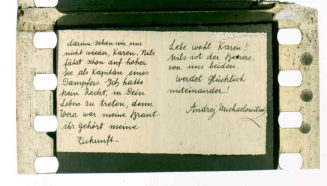 darum sehen wir uns
nicht wieder, Karen. Nils
fährt schon auf hoher
See als Kapitän eines
Dampfers. Ich hatte
kein Recht, in Dein
Leben zu treten, denn
Wera war meine Braut
ihr gehört meine
Zukunft.-
Lebe wohl Karen!
Nils ist der Bessere
von uns beiden.
Werdet glücklich
miteinander!
Andrej